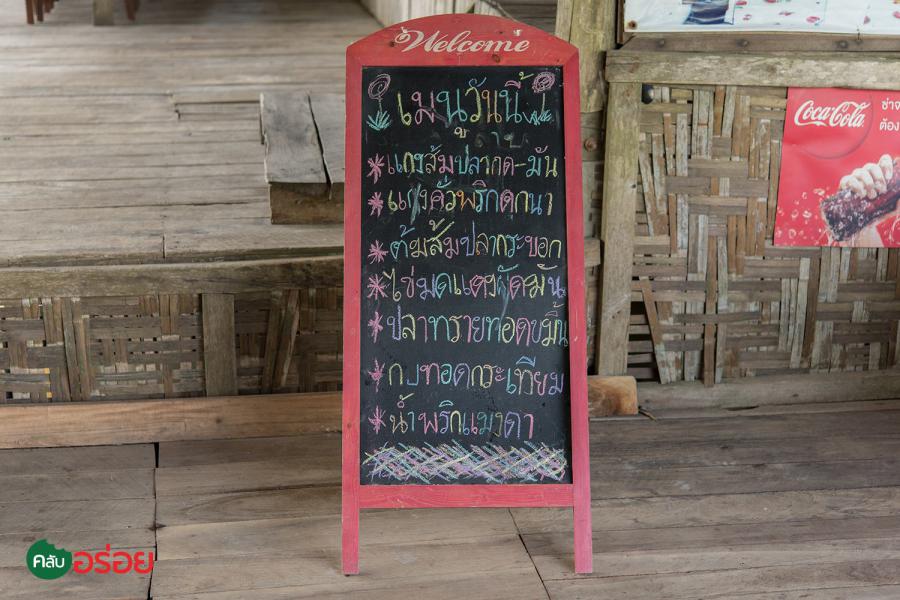 Welcome
เมนูวันนี้
*แกงส้มปลากด-มัน
*แกงคั่วพริกดุกนา
*ต้มส้มปลากระบอก
*ไข่มดแดงผัดมัน
*ปลาทรายทอดขมิ้น
*กบทอดกระเทียม
*น้ำพริกแมงดา
Coca-Cola
ซ่าจ
ต้อง
คลับ อร่อย